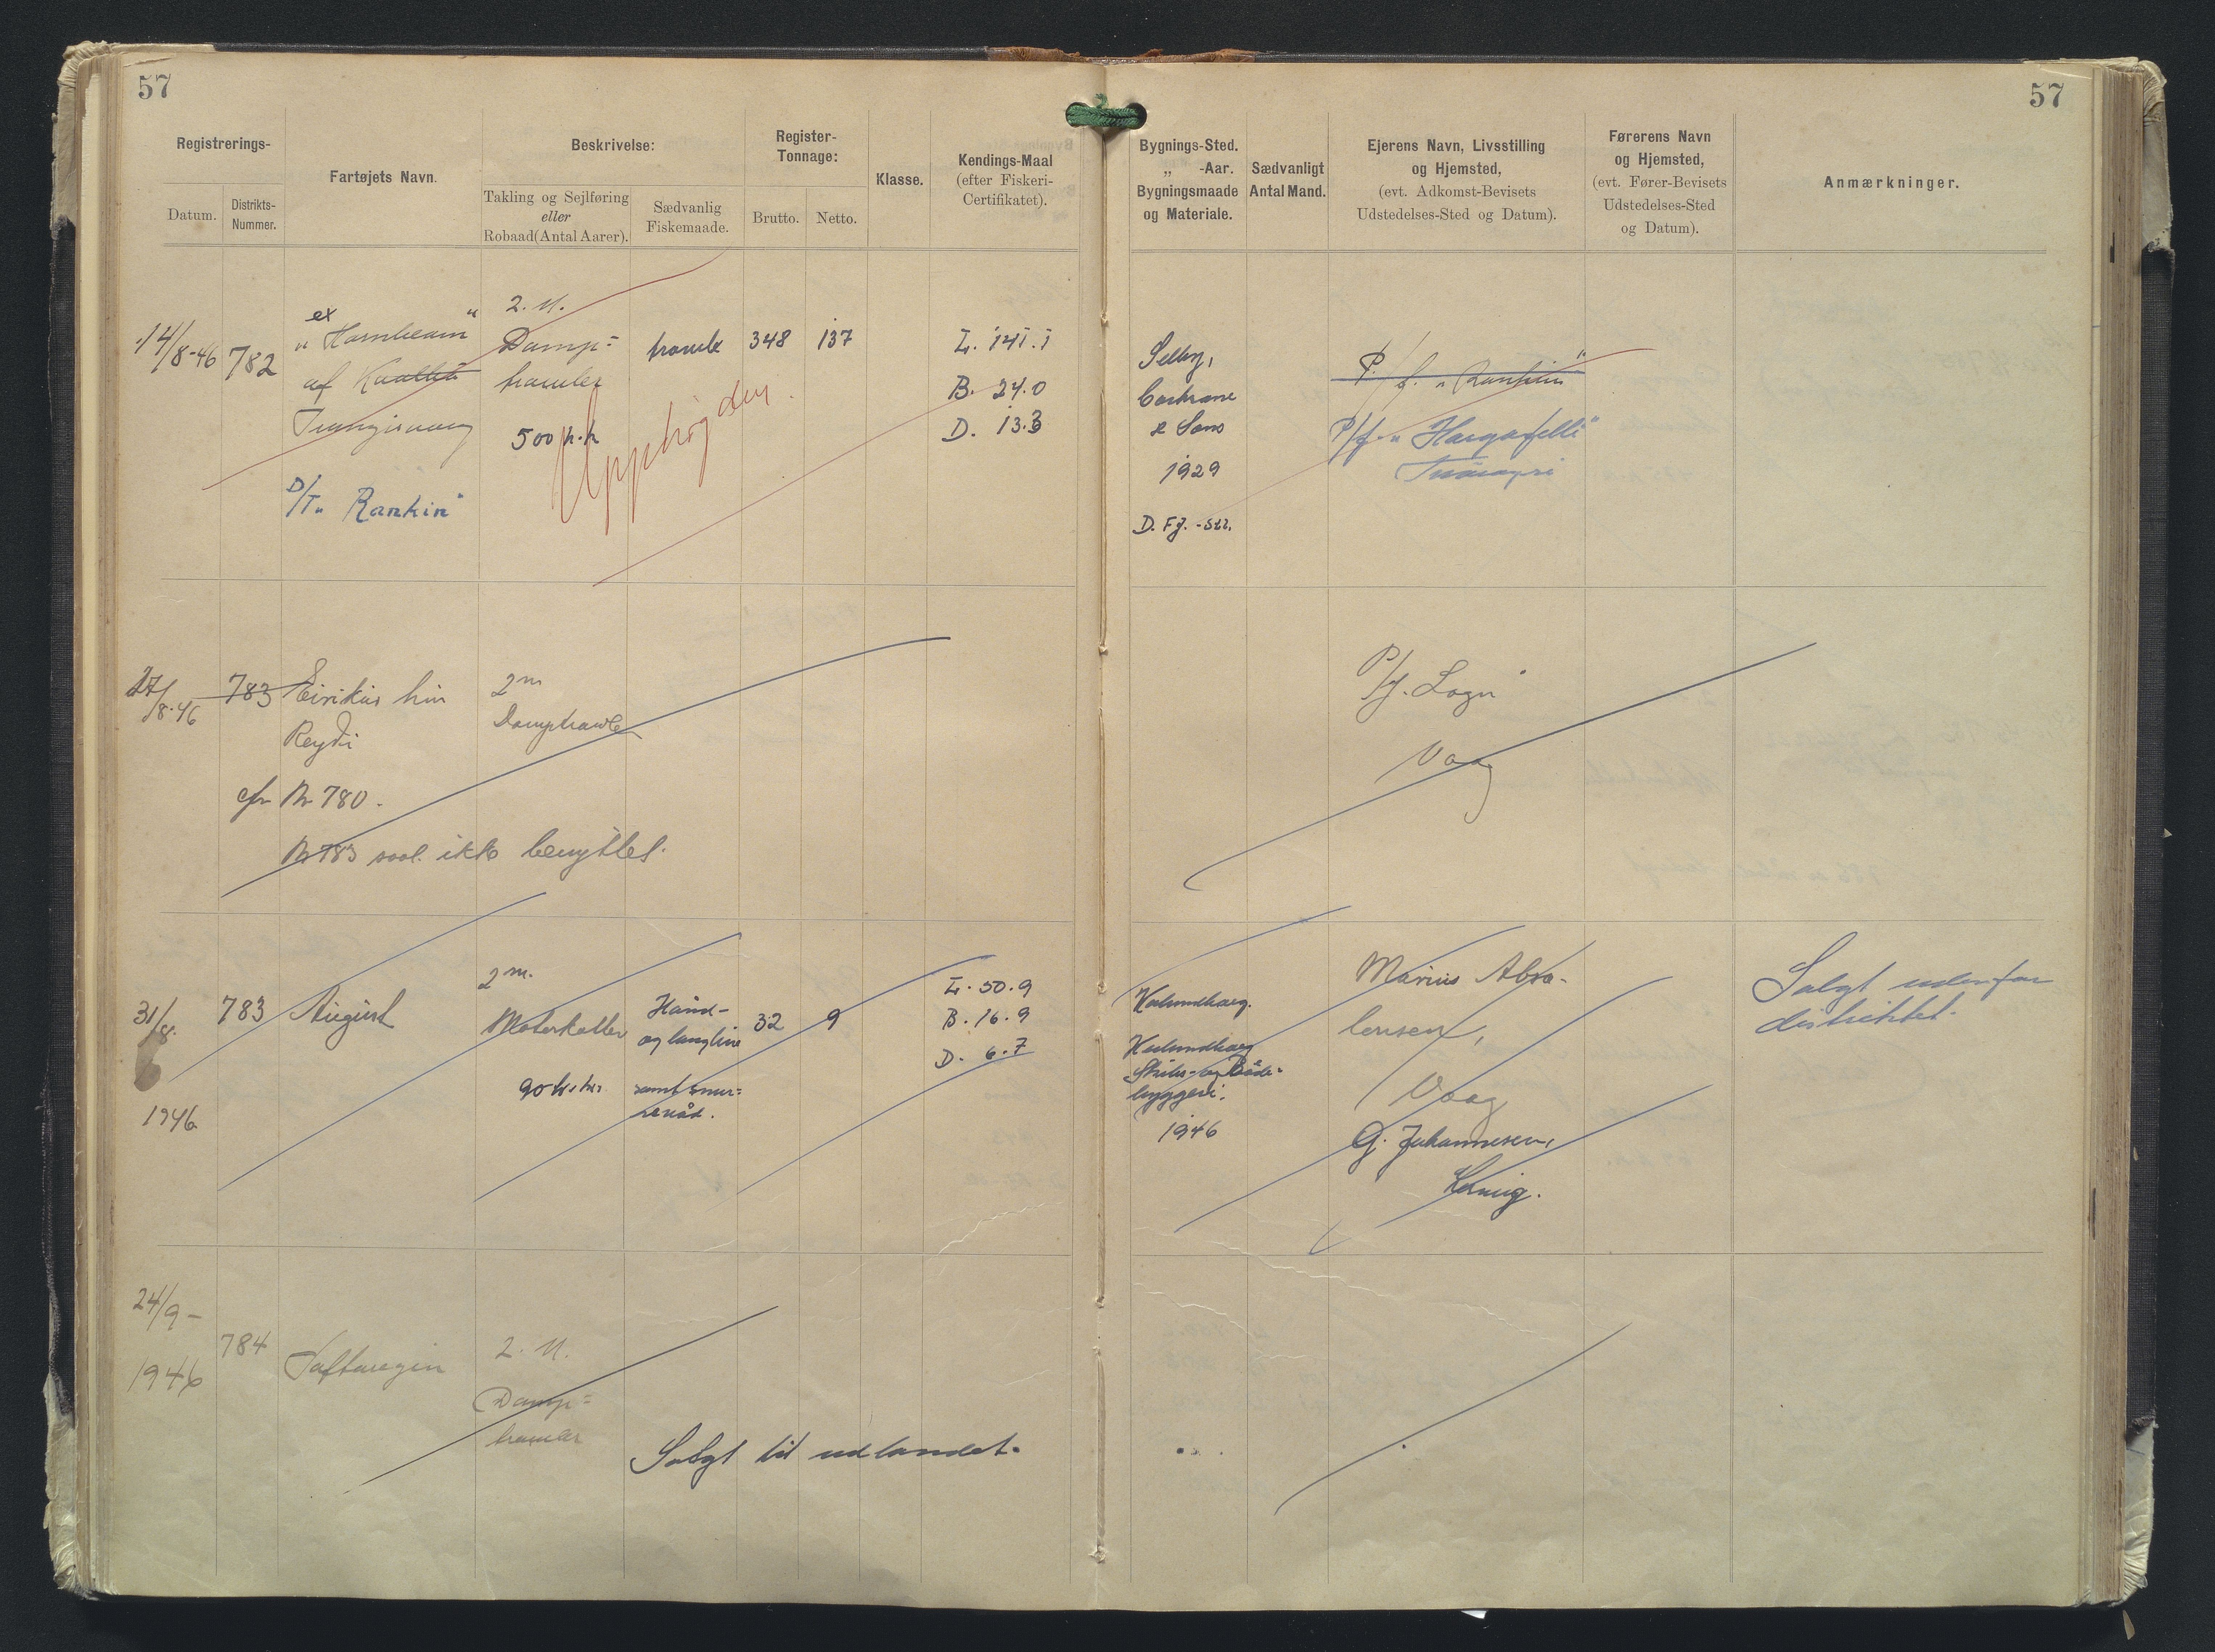 57
57
Registrerings-
Datum.
Distrikts-
Nummer.
Fartøjets Navn.
Beskrivelse:
Takling og Sejlføring
eller
Robaad (Antal Aarer).
Sædvanlig
Fiskemaade.
Register-
Tonnage:
Brutto.
Netto.
Klasse.
Kendings-Maal
(efter Fiskeri-
Certifikatet).
Bygnings-Sted.
„ -Aar.
Bygningsmaade
og Materiale.
Sædvanligt
Antal Mand.
Ejerens Navn, Livsstilling
og Hjemsted,
(evt. Adkomst-Bevisets
Udstedelses-Sted og Datum).
Førerens Navn
og Hjemsted,
(evt. Fører-Bevisets
Udstedelses-Sted
og Datum).
Anmærkninger.
14/8-46
782
ex
„Hornbeam“
af
D/T „Rankin“
2. M.
Damp=
trawler
500 h.k
trawl
348
137
L. 141.1
B. 24.0
D. 13.3
Selby,
Cochrane
& Sons
1929
D. Fj. -Str.
P/f. „Rankin“
P/f. „Hargafelli“
17/8-46
783
Eirikur hin
Reydi
cfr Nr 780.
Nr 783 ikke benyttet.
2m
Damptrawler
P/f. Sogn
Vaag
31/8.
1946
783
August
2m.
Motorkutter
90 hk.
Hånd-
og langline
samt snur=
revåd.
32
9
L. 50.9
B. 16.9
D. 6.7
Kalundborg.
Kalundborg
Skibs- og Både-
byggeri.
1946
Marius Abra-
hamsen,
Vaag
G. Johannesen,
Solgt udenfor
distriktet.
24/9-
1946
784
2. M.
Damp=
Solgt til udlandet.